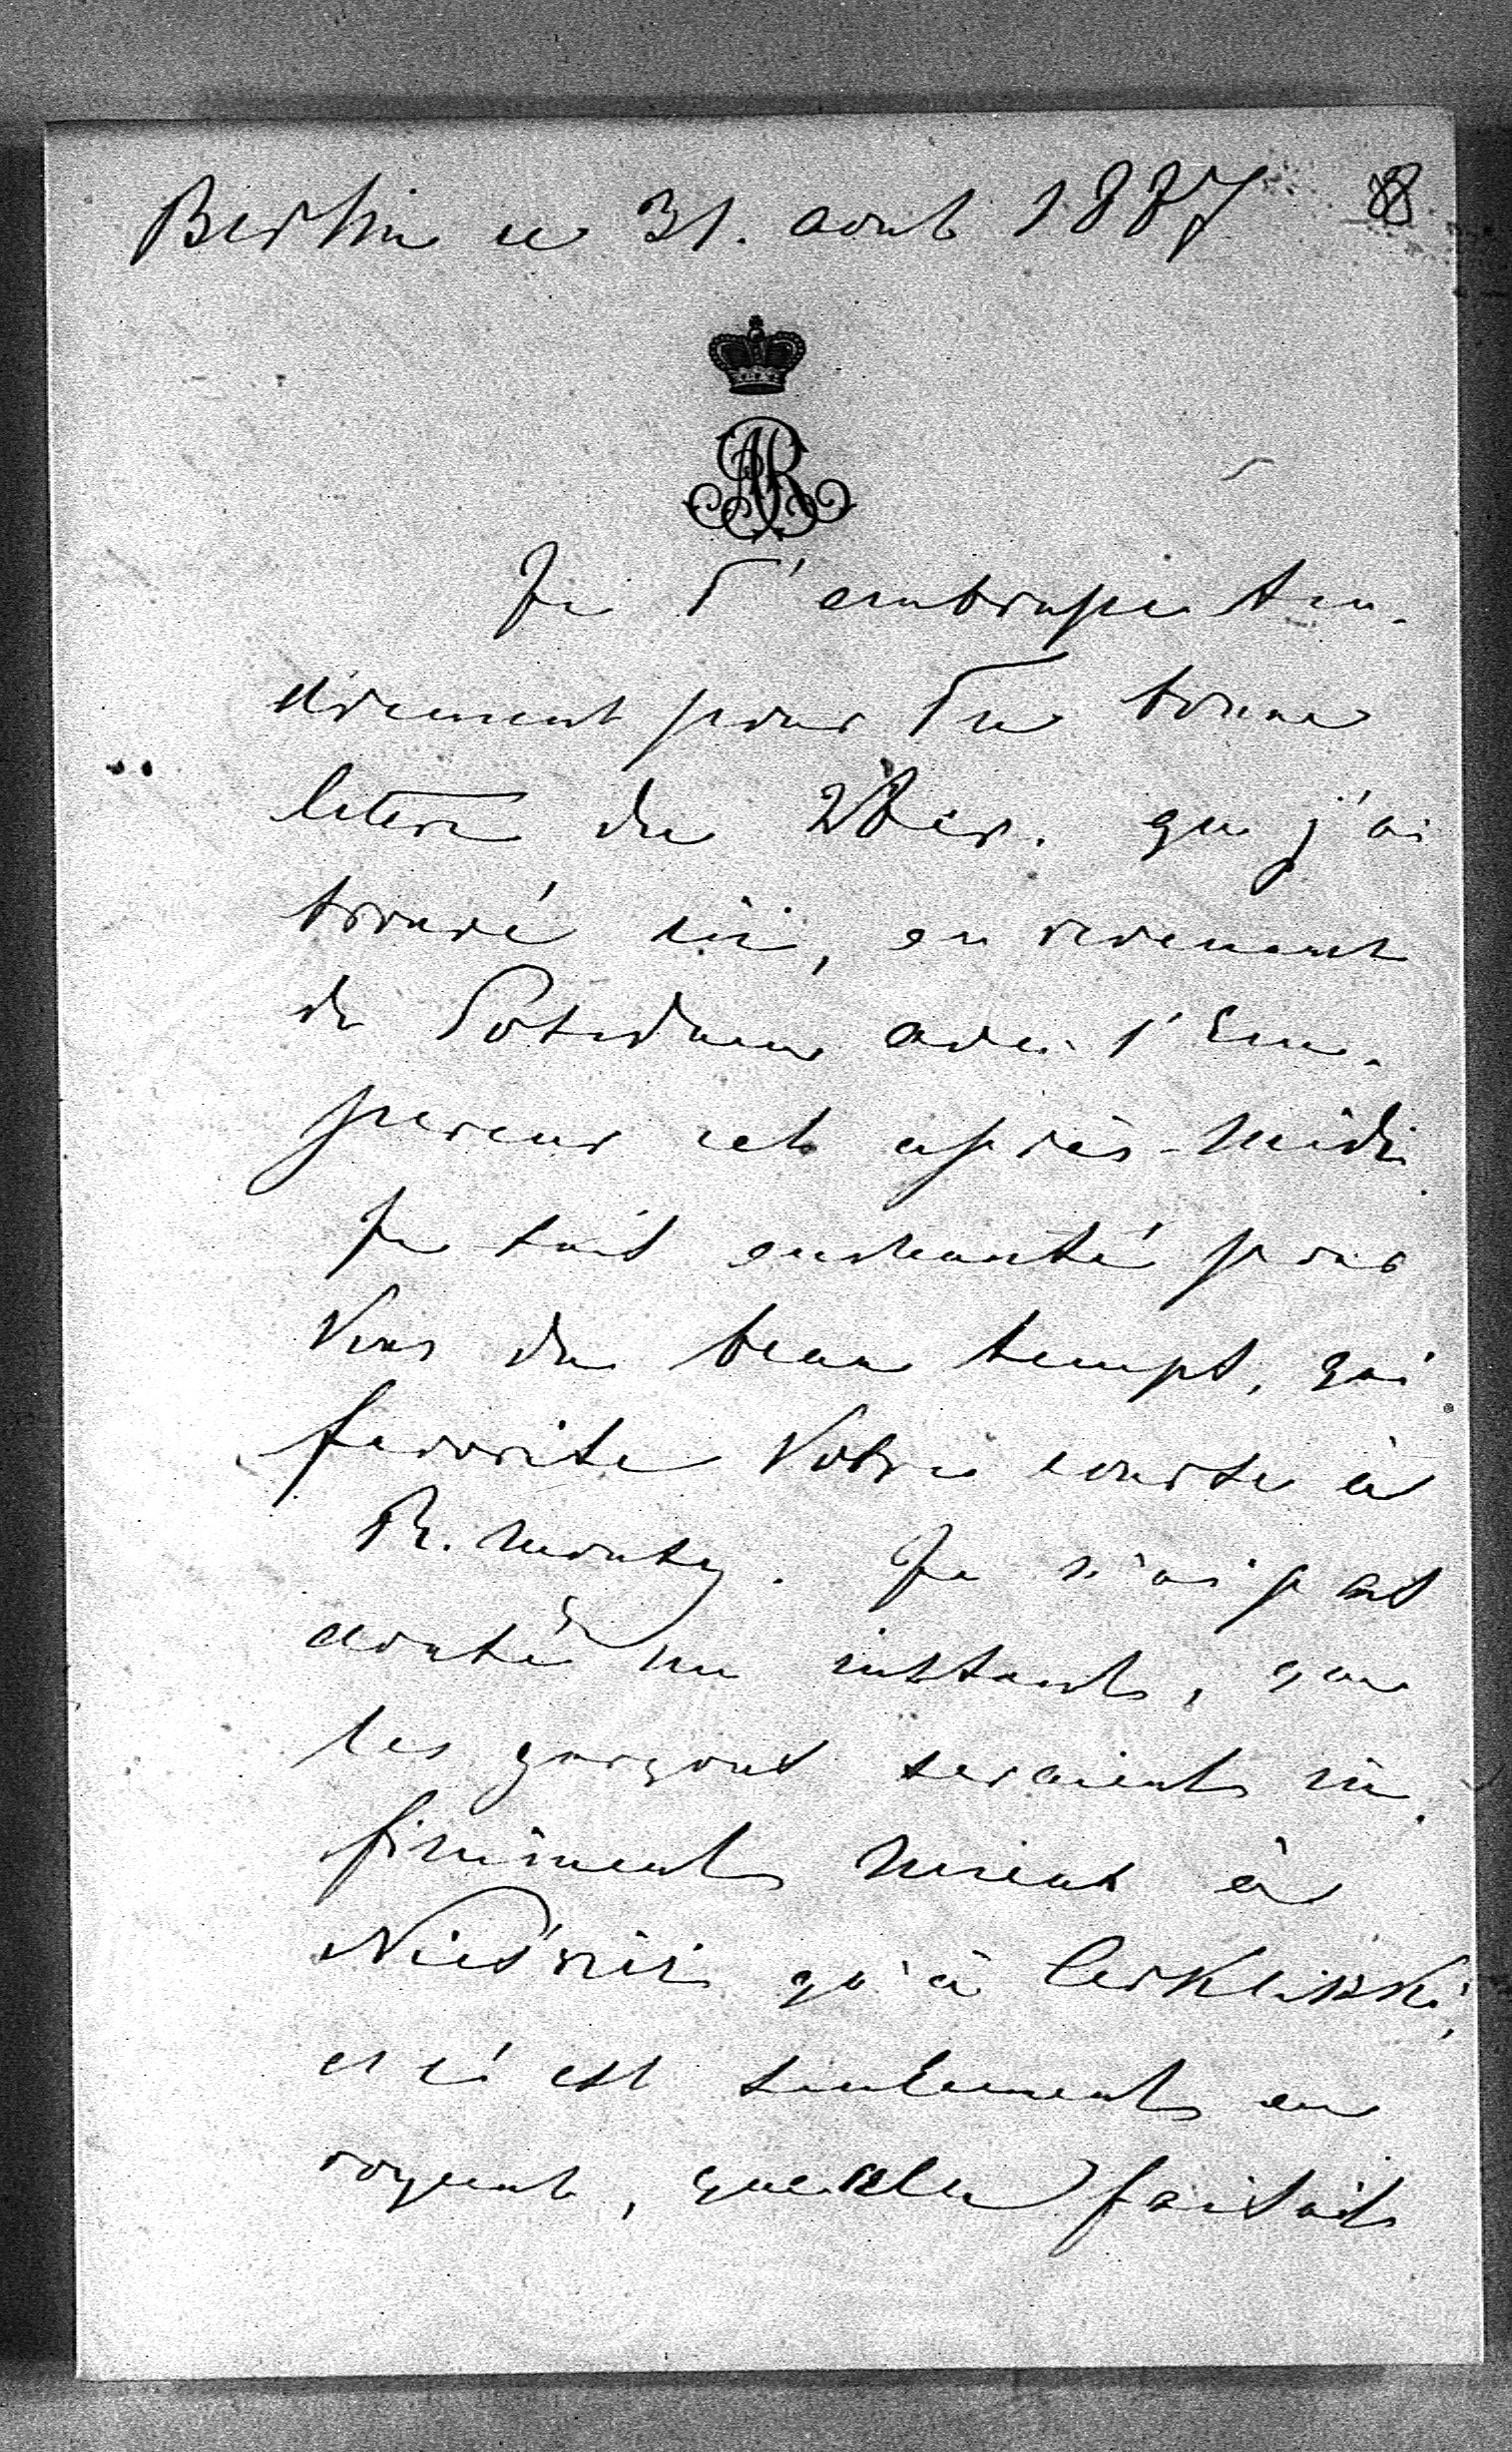 Berlin ce 31. aout 1887 8
AR
Je T'embrasse ten-
drement pour Ta bonne
lettre du 28 er. que j'ai
trouvé ici, en revenant
de Potsdam avec l'Em-
pereur cet après-midi.
Je suis enchanté pour
Vous du beau temps, qui
favorise Votre course à
R. monty. Je n'ai pas
douté un instant, que
les garçons seraient in-
finiment mieux à
Nieśwież qu'à
et c'est seulement en
voyant, que cela faisait